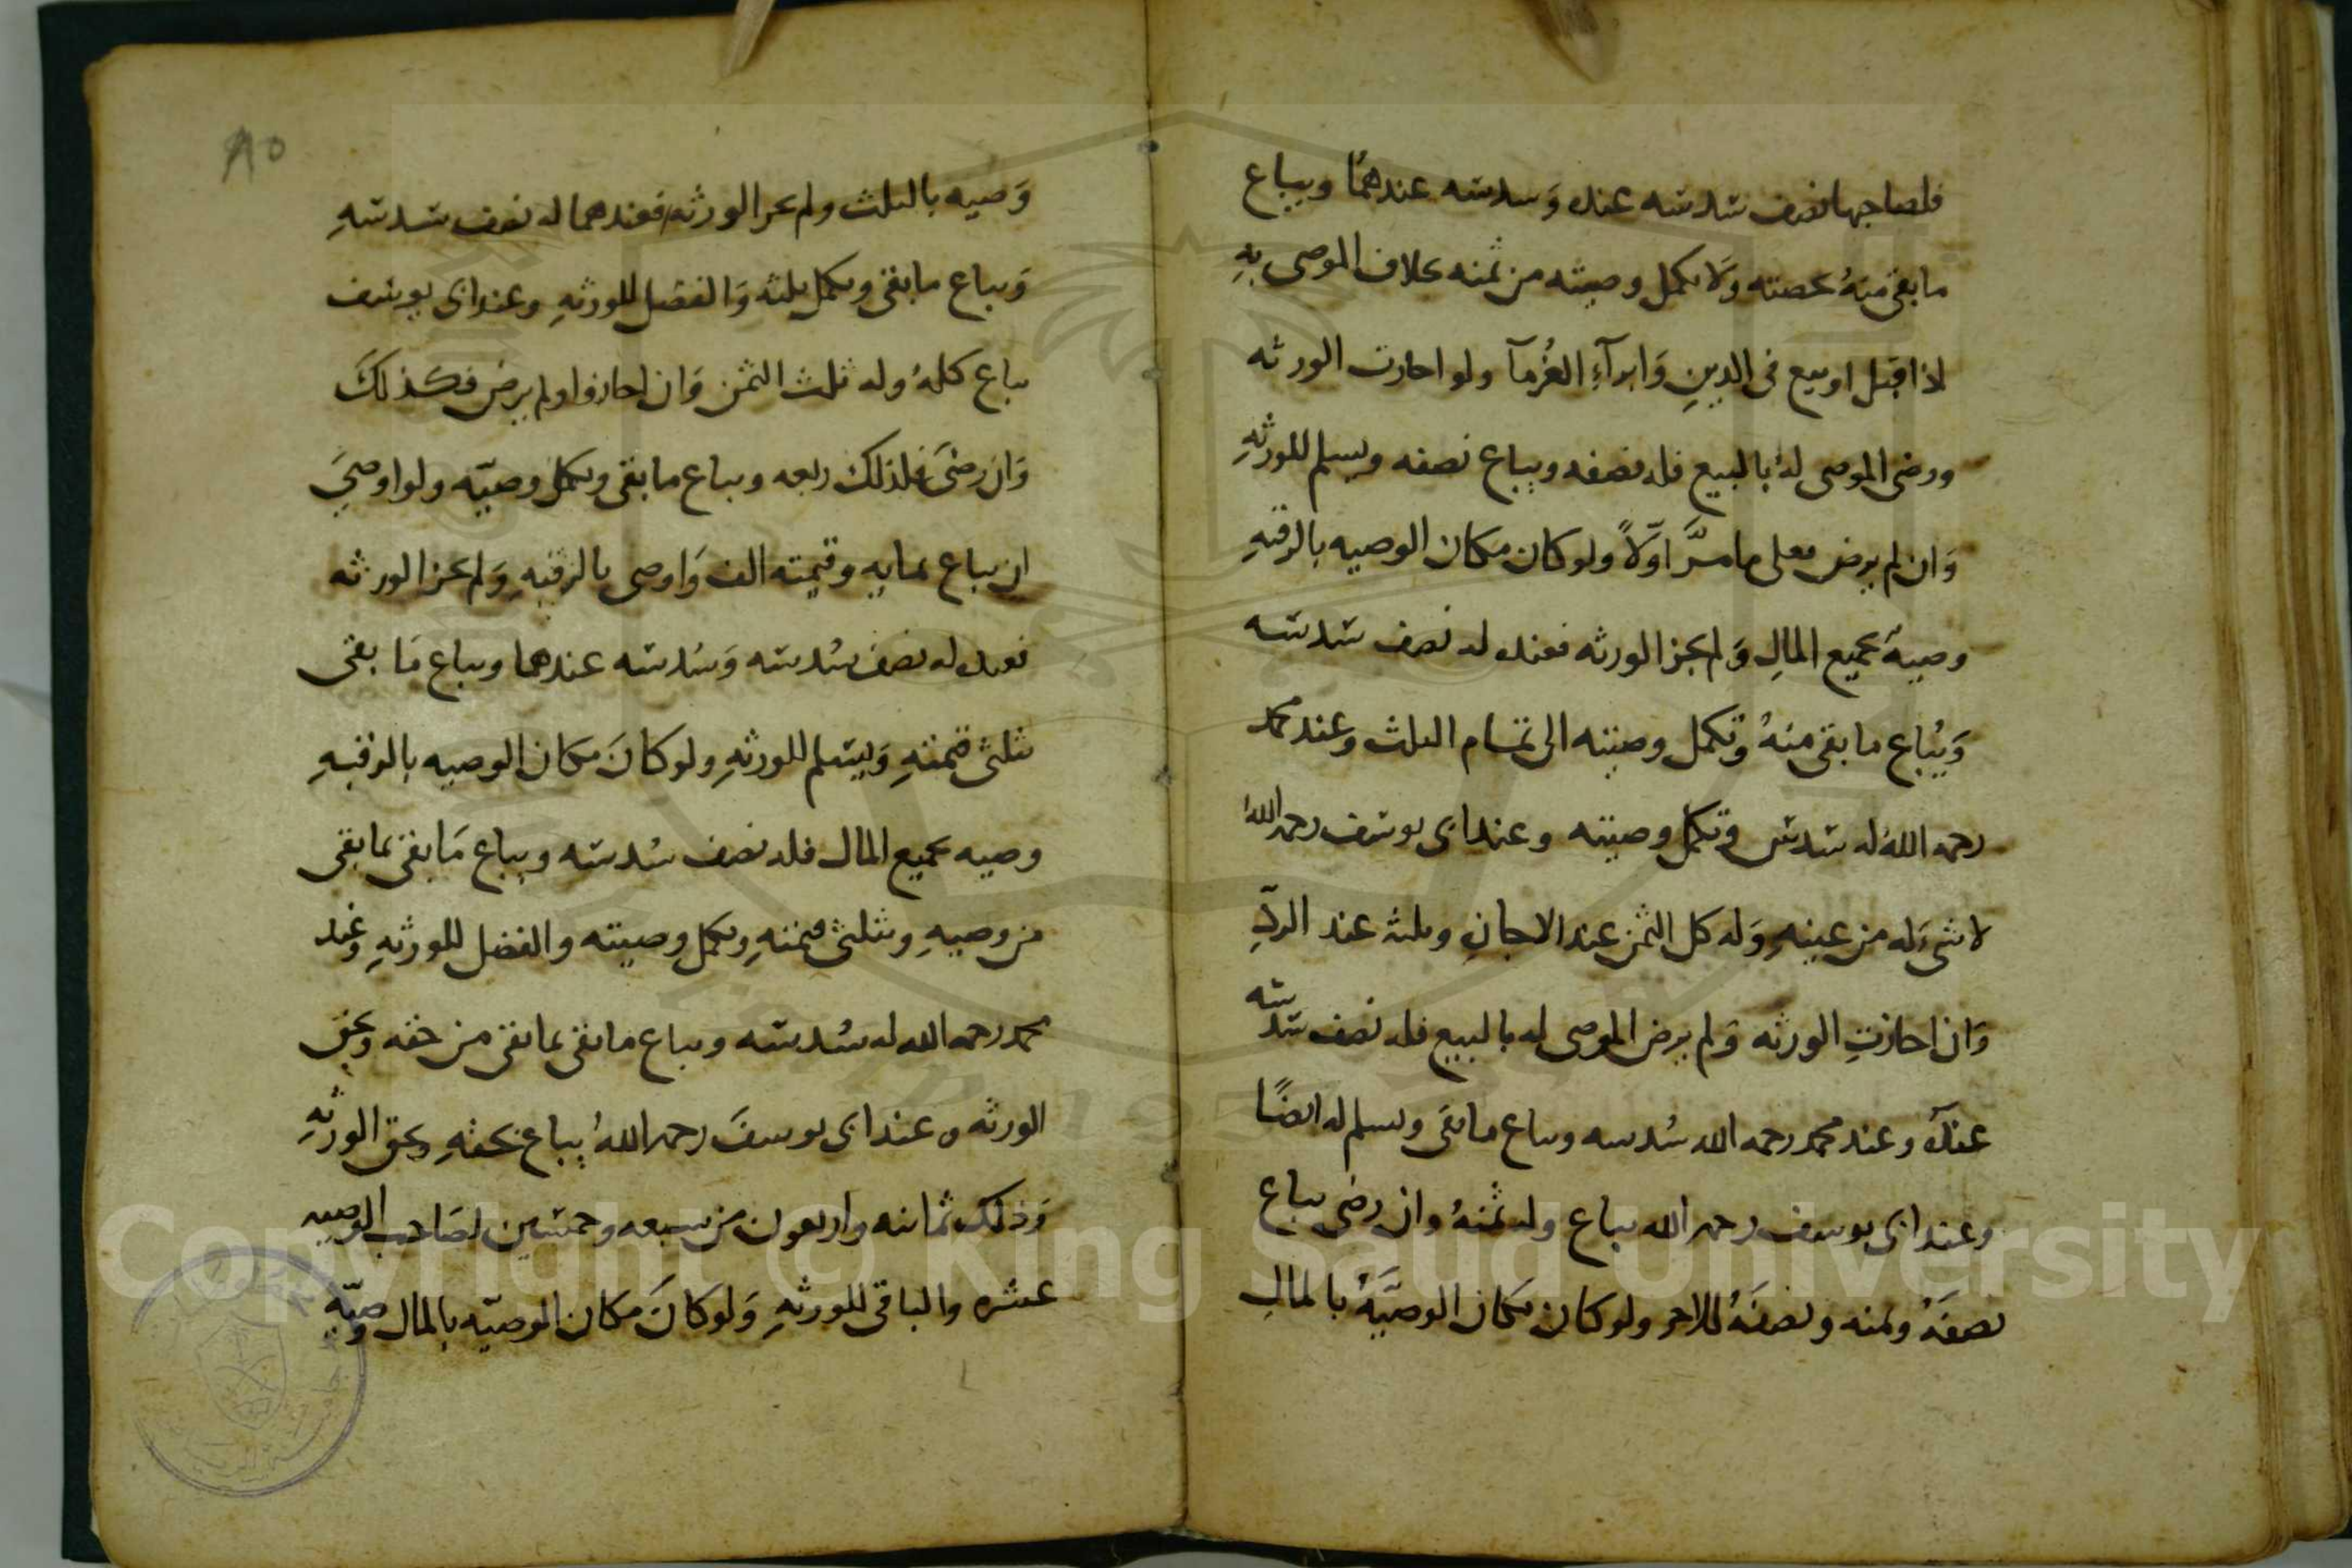 فلصاحبها نصف سدسه عنده وَسدسه عندهمَا ويباع
ما بقى منهُ بحصته وَلا يكمل وصيته من ثمنه بخلاف الموصى بهِ
اذا قتل او بيع فى الدينِ وَابرآءِ الغُرمآ ولو اجازت الورثه
ورضى الموصى لهُ بالبيع فله نصفه ويباع نصفه ويسلم للورثهِ
وَان لم يرض فعلى ما مرَّ اوّلاً ولو كان مكان الوصيه بالرقبهِ
وصيهً بجميع المالِ وَلم يجز الورثه فعنده له نصف سدسه
وَيُباع ما بقى منهُ وتكمل وصيته الى تمام الثلث وعند محمد
رحمه اللهُ له سدس وتكمل وصيته وعند ابى يوسف رحمه اللهُ
لا شىءَ له من عينهِ وَله كل الثمن عند الاجازه وثلثه عند الردِّ
وَان اجازتِ الورثه وَلم يرض الموصى له بالبيع فله نصف سدسه
عندهُ وعند محمد رحمه الله سُدسه ويباع ما بقى ويسلم له ايضًا
وعند ابى يوسف رحمه الله يباع وله ثمنهُ وان رضى يباع
نصفَهُ وثمنه ونصفَهُ للاخر ولو كان مكان الوصيَّهُ بالمالِ
٨٥
وَصيه بالثلث ولم يجز الورثه فعندهما له نصف سدسهِ
وَيباع ما بقى ويكمل ثلثه وَالفضل للورثهِ وعند ابى يوسف
يباع كلهُ وله ثلث الثمن وَان اجازوا ولم يرض فكذلكَ
وَان رضىَ فلذلك ربعه ويباع ما بقى ويكمل وصيّته ولو اوصىَ
ان يباع بمايهٍ وقيمته الف وَاوصى بالرقبهِ وَلم يجز الورثه
فعنده له نصف سُدسه وَسُدسه عندهما ويباع مَا بقى
بثلثى قيمتهِ وَيسلم للورثهِ ولو كانَ مكان الوصيه بالرقبهِ
وصيه بجميع المال فله نصف سُدسه ويباع مَا بقى بما بقى
من وصيهِ وبثلثى قيمتهِ ويكمل وصيته والفضل للورثهِ وعند
محمد رحمه الله له سُدسه ويباع ما بقى بما بقى من حقه وبحق
الورثه وعند ابى يوسفَ رحمه اللهُ يباع بحقهِ وبحق الورثهِ
وَذلك ثمانيه واربعون من سبعه وخمسين لصَاحب الوصيه
عشره والباقى للورثهِ وَلو كانَ مكان الوصيّه بالمال وصيّهٌ
Copyright © King Saud University